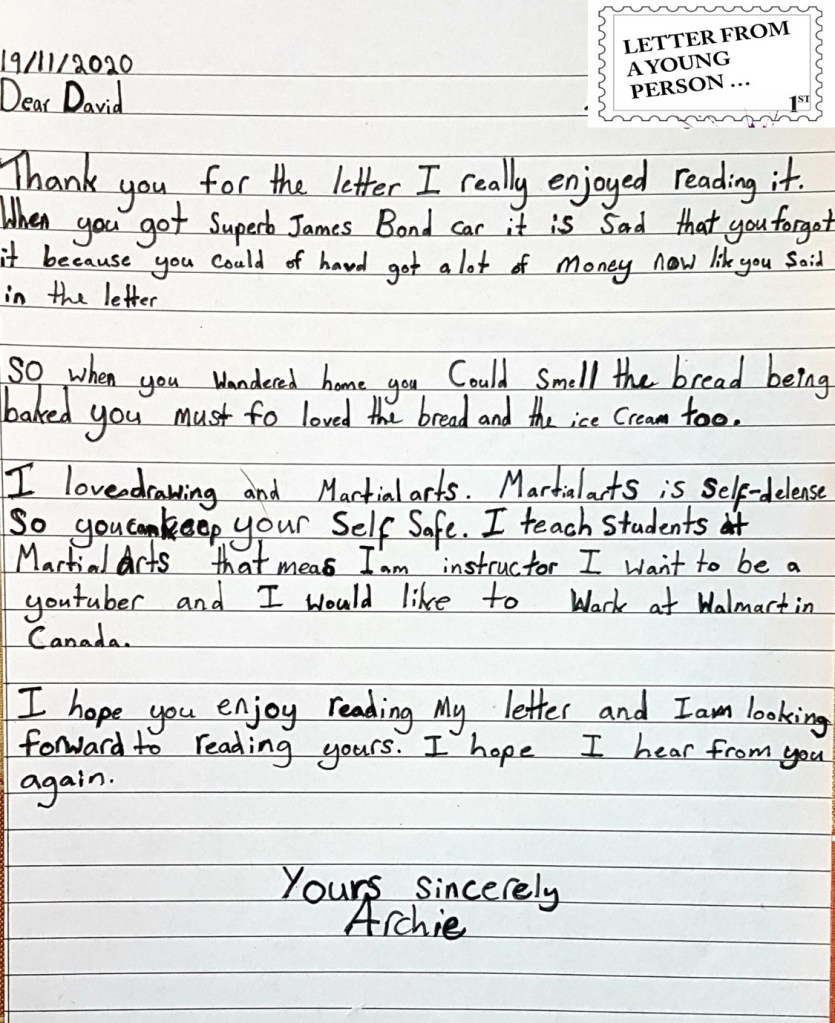 LETTER FROM
A YOUNG
PERSON ...
1ST
19/11/2020
Dear David
Thank you for the letter I really enjoyed reading it.
When you got Superb James Bond car it is Sad that you forgot
it because you could of havd got a lot of money now lik you Said
in the letter
So when you wandered home you Could Smell the bread being
baked you must fo loved the bread and the ice Cream too.
I love drawing and Martial arts. Martial arts is Self-defense
So you can keep your Self Safe. I teach Students at
Martial Arts that meas I am instructor I want to be a
youtuber and I would like to Wark at Walmart in
Canada.
I hope you enjoy reading My letter and I am looking
forward to reading yours. I hope I hear from you
again.
Yours sincerely
Archie